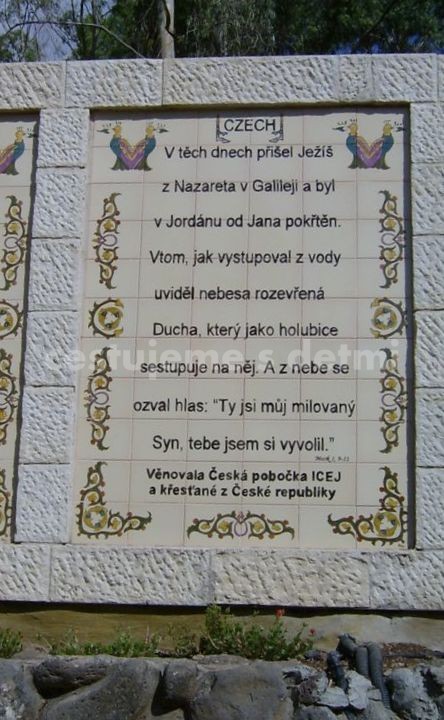 CZECH
V těch dnech přišel Ježíš
z Nazareta v Galileji a byl
v Jordánu od Jana pokřtěn.
Vtom, jak vystupoval z vody
uviděl nebesa rozevřená
Ducha, který jako holubice
cestujeme s detmi
sestupuje na něj. A z nebe se
ozval hlas: "Ty jsi můj milovaný
Syn, tebe jsem si vyvolil."
Věnovala Česká pobočka ICEJ
a křesťané z České republiky